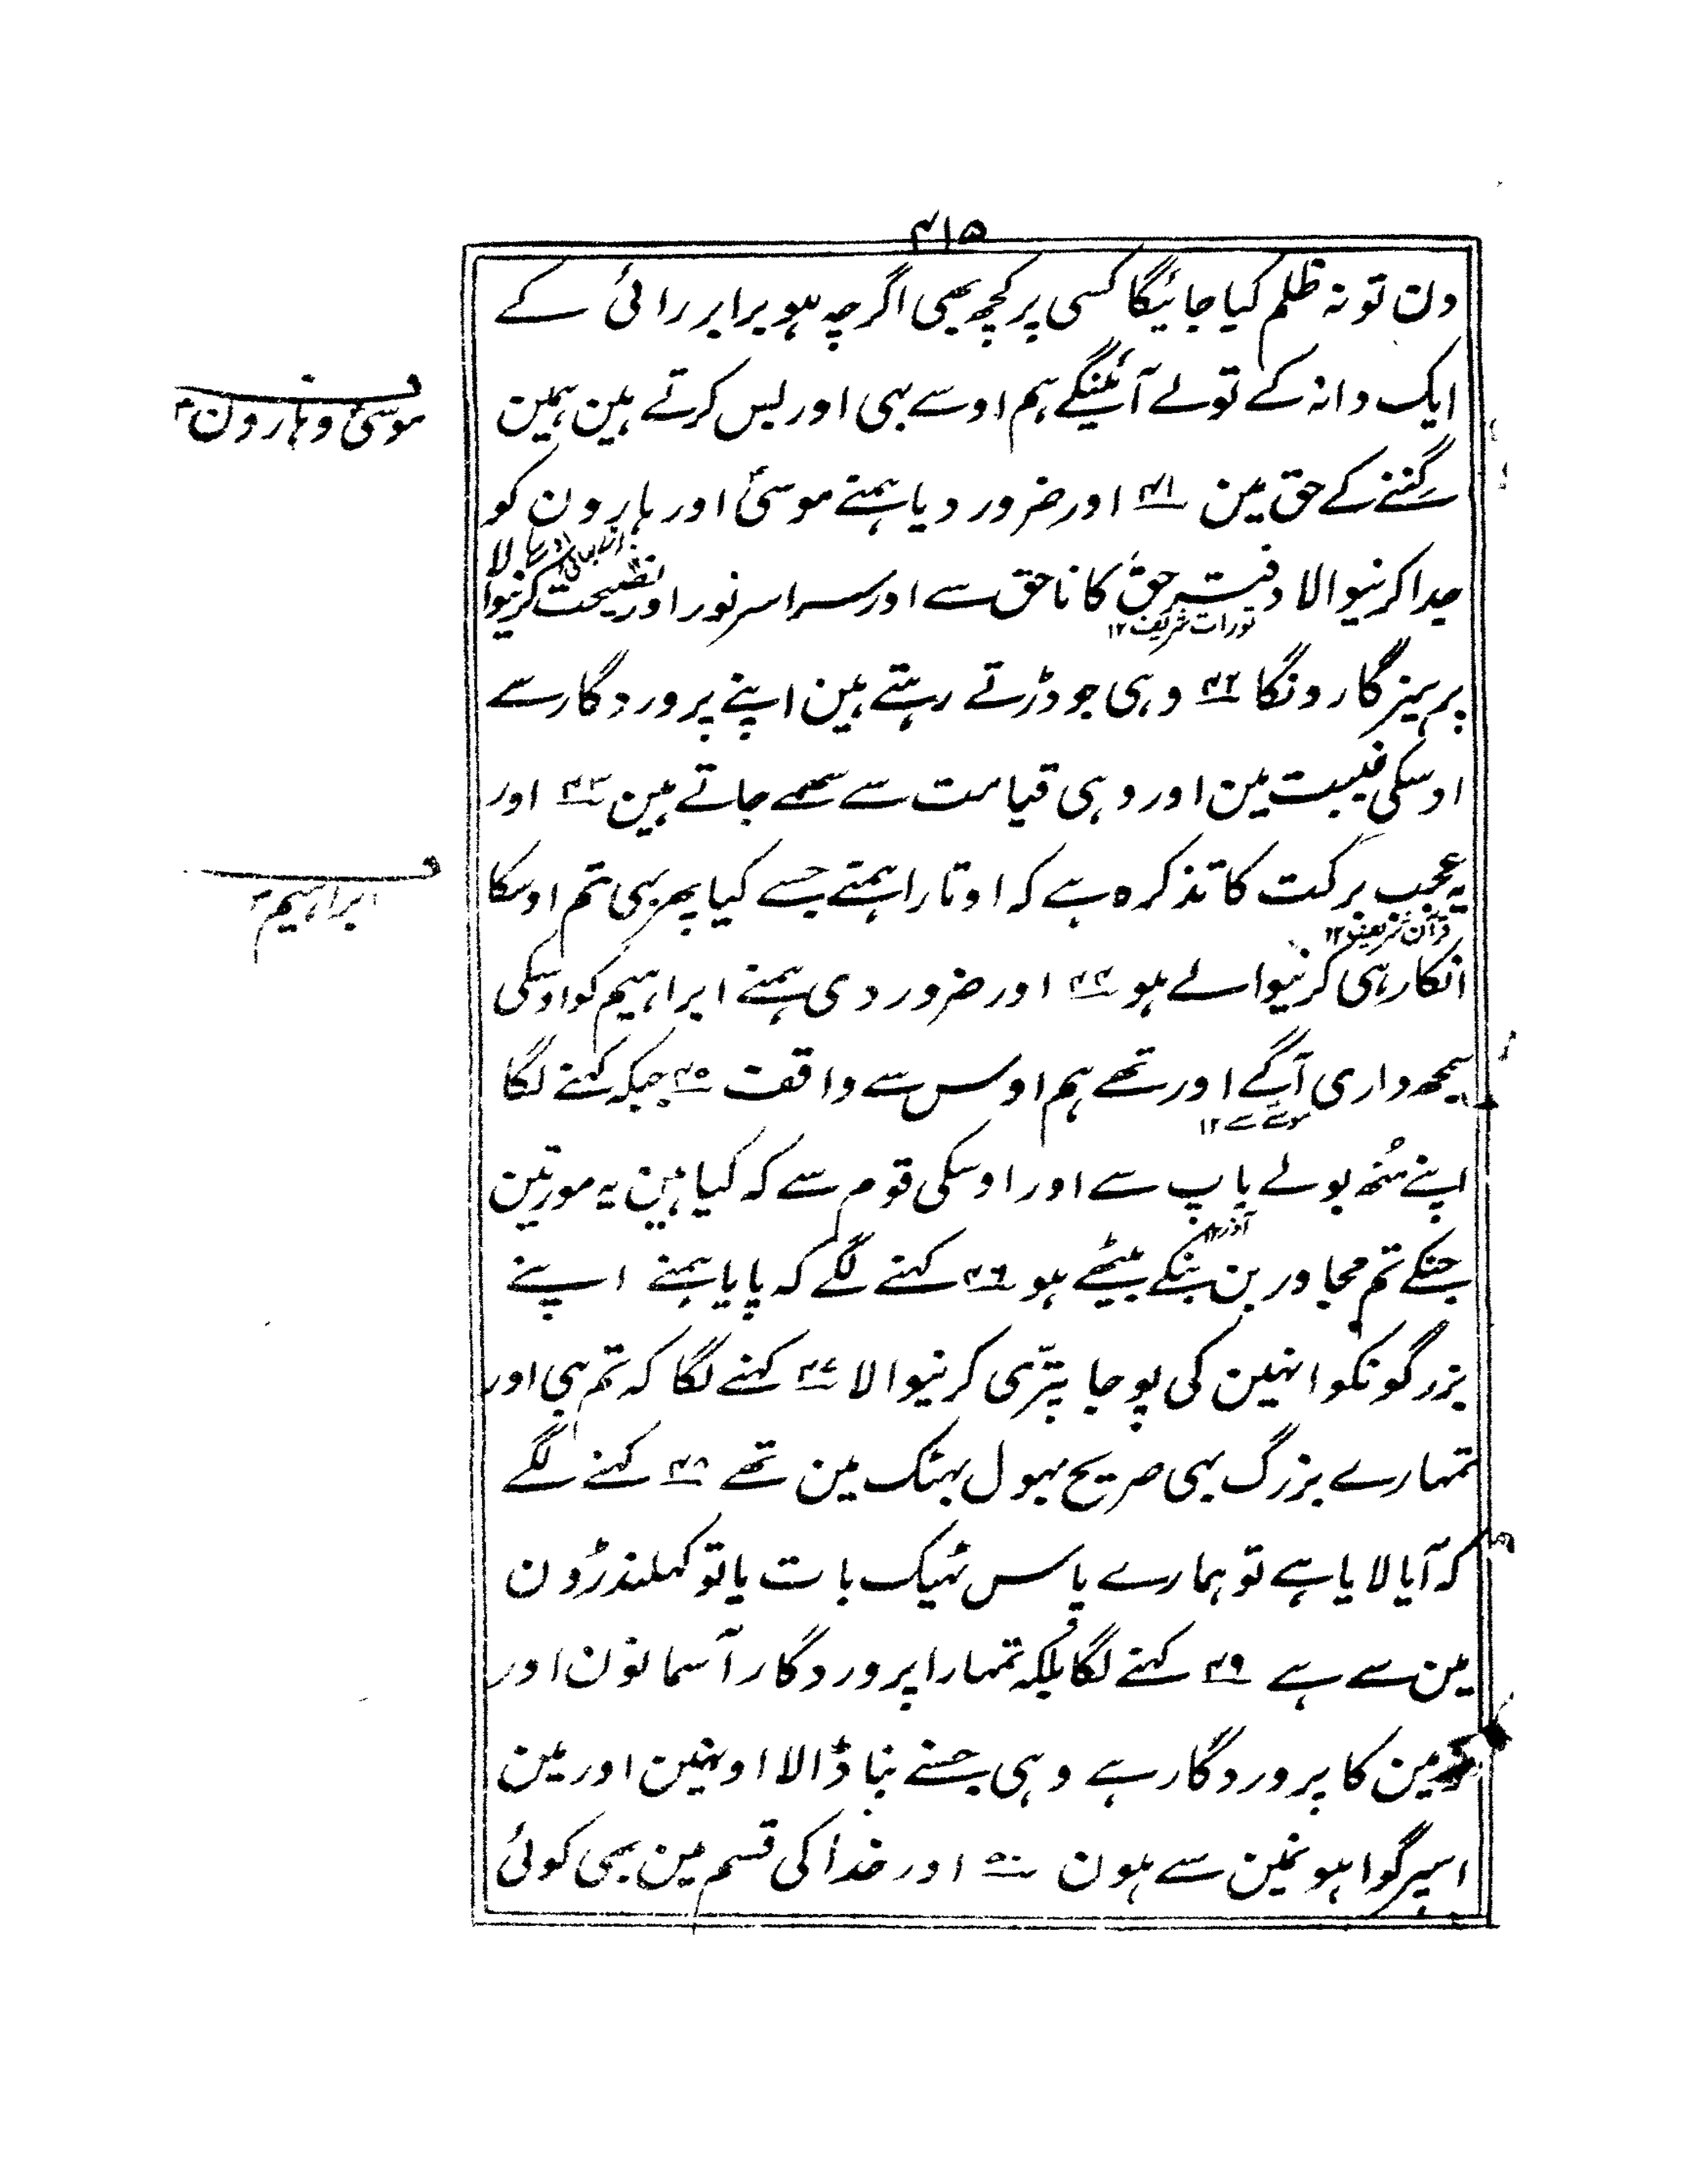 ۴۱۵
دن تو نہ ظلم کیا جائیگا کسی پر کچھ بھی اگرچہ ہو برابر رائی کے
ایک دانہ کے تولے آئینگے ہم اوسے بہی اور بس کرتے ہین ہمین
موسیٰ و ہارون
گننے کے حق مین ۴۱ اور ضرور دیا ہمنے موسیٰ اور ہارون کو
جدا کرنیوالا دفتر حق کا ناحق سے اور سراسر نور اور نصیحت کرنیوالا
تورات شریف ۱۲
پرہیزگارونکا ۴۲ وہی جو ڈرتے رہتے ہین اپنے پروردگار سے
اوسکی غیبت مین اور وہی قیامت سے سہمے جاتے ہین ۴۳ اور
یہ عجب برکت کا تذکرہ ہے کہ اوتارا ہمنے جسے کیا پھر بہی تم اوسکا
قرآن شریف ۱۲
ابراہیم
انکار ہی کرنیوالے ہو ۴۴ اور ضرور دی ہمنے ابراہیم کو اوسکی
سمجھ داری آگے اور تھے ہم اوس سے واقف ۴۵ جبکہ کہنے لگا
موسے سے ۱۲
اپنے مُنھ بولے باپ سے اور اوسکی قوم سے کہ کیا ہین یہ مورتین
آذر ۱۲
جنکے تم مجاور بن بنکے بیٹھے ہو ۴۶ کہنے لگے کہ پایا ہمنے اپنے
بزرگونکو انہین کی پوجا پتری کرنیوالا ۴۷ کہنے لگا کہ تم بہی اور
تمہارے بزرگ بہی صریح بہول بہٹک مین تھے ۴۸ کہنے لگے
کہ آیا لایا ہے تو ہمارے پاس ٹہیک بات یا تو کہلنڈرُون
مین سے ہے ۴۹ کہنے لگا بلکہ تمہارا پروردگار آسمانون اور
زمین کا پروردگار ہے وہی جسنے بنا ڈالا اونہین اور مین
اسپر گواہونمین سے ہون ۵۰ اور خدا کی قسم مین بہی کوئی